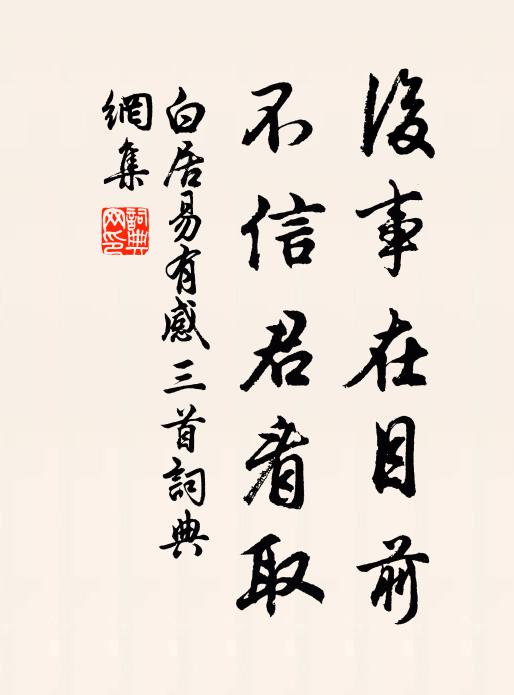 後事在目前
不信君看取
白居易有感三首詞典
網集
詞典
网印